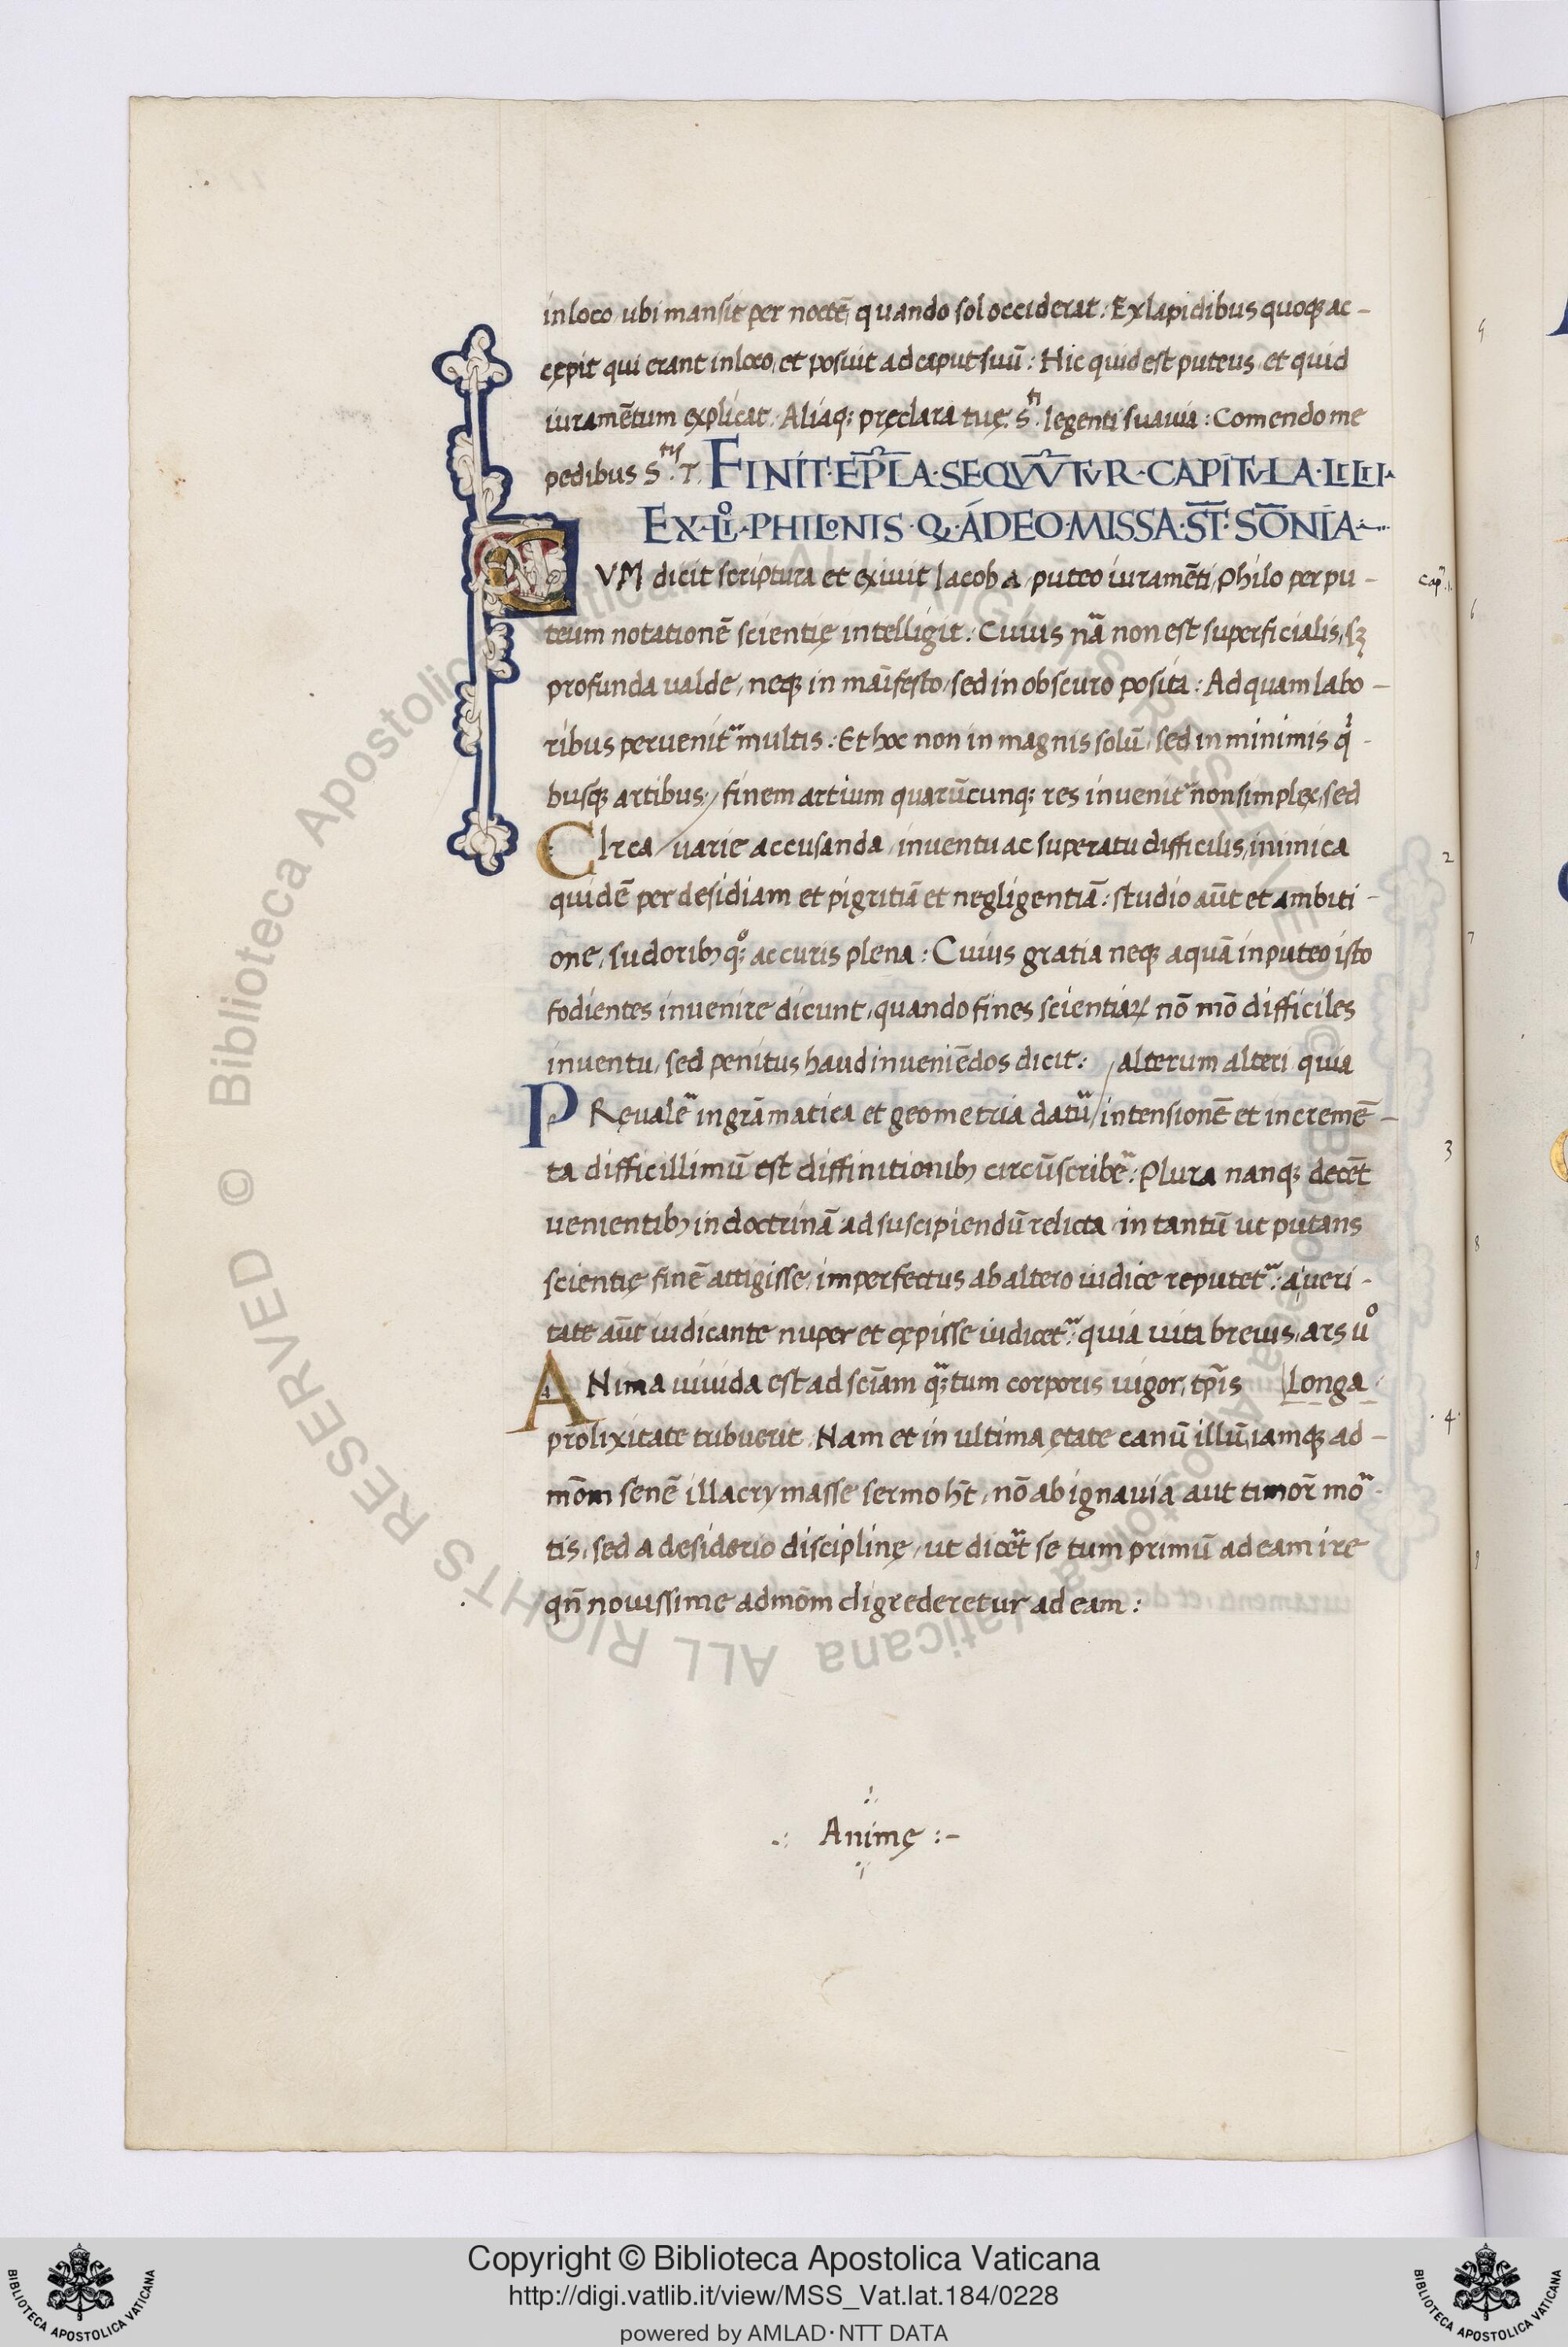 in loco ubi mansit per noctē quando sol occiderat: Ex lapidibus quoq; ac-
cępit qui erant in loco, et posuit ad caput suū: Hic quid est puteus, et quid
iuramētum explicat. Aliaq; pręclara tuę. S.ti legenti suauia: Comendo me
pedibus S.tis T. FINIT·EPL̄A·SEQVVTVR·CAPITVLA·
EX·LI·PHILONIS·Q·A DEO·MISSA·ST̄·SŌNIA
CVM dicit scriptura et exiuit Iacob a puteo iuramēti, Philo per pu-
teum notationē scientię intelligit. Cuius nā non est superficialis, sꝫ
profunda ualde, neq; in māifesto, sed in obscuro posita: Ad quam labo-
ribus peruenit᷑ multis: Et hoc non in magnis solū, sed in minimis qi-
busq; artibus, finem artium quarūcunq; res inuenit᷑ non simplex, sed
CIrca uarie accusanda, inuentu ac superatu difficilis, inimica
quidē per desidiam et pigritiā et negligentiā: studio aūt et ambiti-
one, sudoribꝫ qo; ac curis plena: Cuius gratia neq; aquā in puteo isto
fodientes inuenire dicunt, quando fines scientiaꝝ nō mō difficiles
inuentu, sed penitus haud inueniēdos dicit: alterum alteri quia
PRęualē in grāmatica et geometria datū intensionē et incremē-
ta difficillimū est diffinitionibꝫ circūscribē: Plura nanq; decēt
uenientibꝫ in doctrinā ad suscipiendū relicta in tantū ut putans
scientię finē attigisse, imperfectus ab altero iudice reputet᷑: a ueri-
tate aūt iudicante nuper et cępisse iudicet᷑: quia uita breuis, ars uo
ANima uiuida est ad scīam q;tum corporis uigor, tp̄is Longa
prolixitate tubuerit. Nam et in ultima ętate canū illū, iamq; ad-
mōm senē illacrymāsse sermo hēt, nō ab ignauia aut timor̄ mo-
tis, sed a desiderio disciplinę, ut dicēt se tum primū ad eam ire
qn̄ nouissime admōm digrederetur ad eam:
Animę :-
cap. 1.
2
3
4
Copyright © Biblioteca Apostolica Vaticana
http://digi.vatlib.it/view/MSS_Vat.lat.184/0228
powered by AMLAD·NTT DATA
BIBLIOTECA APOSTOLICA VATICANA
BIBLIOTECA APOSTOLICA VATICANA